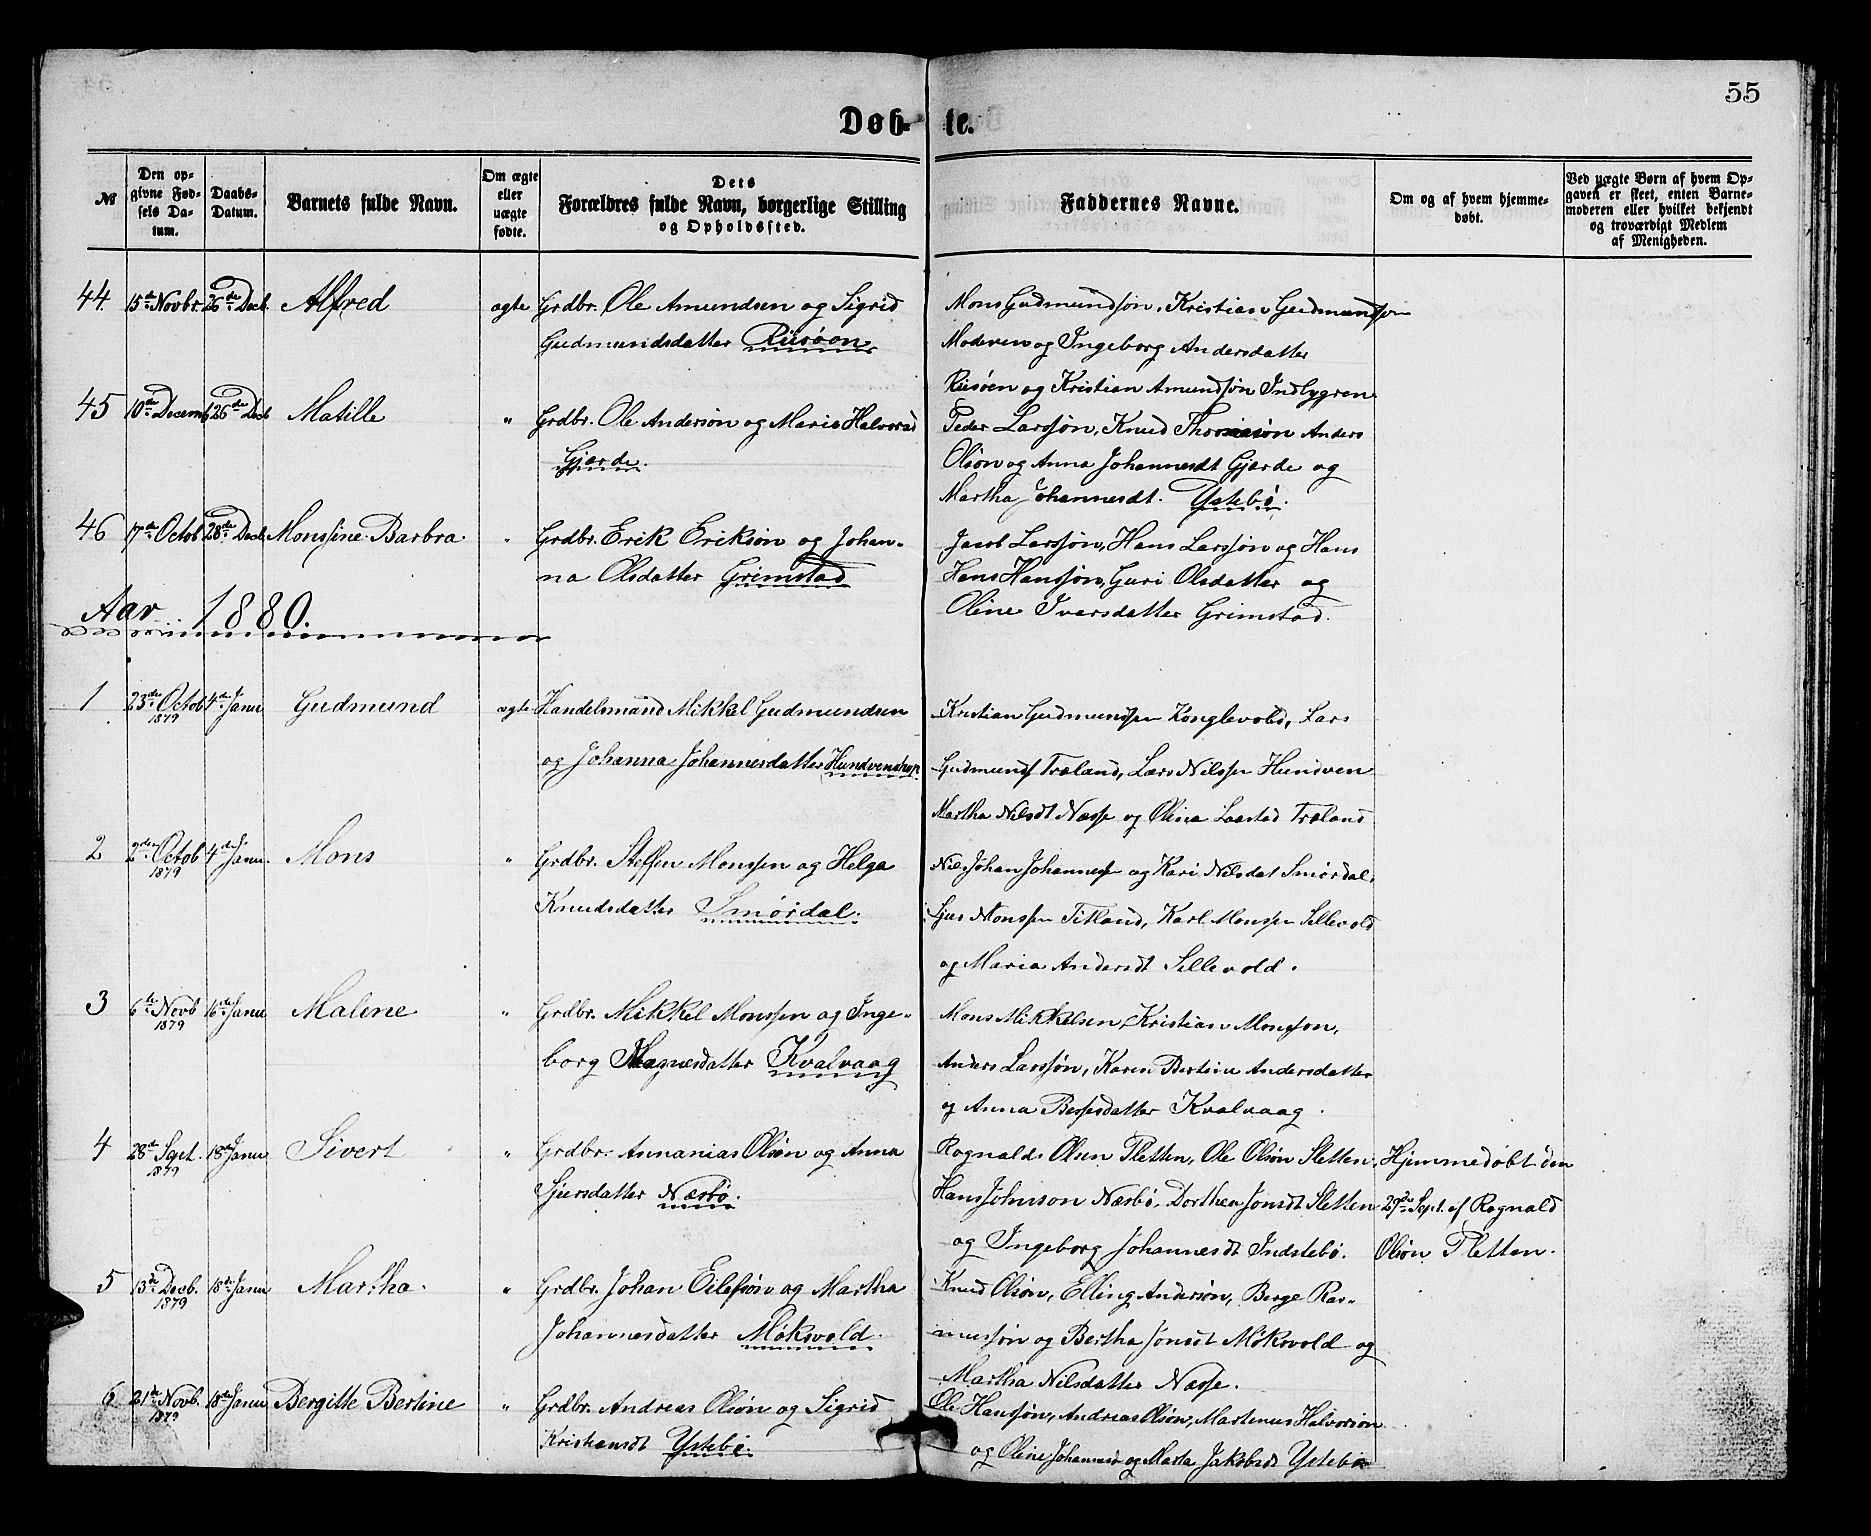 55
Døb-te.
№
Den op-
givne Fød-
sels Da-
tum.
Daabs-
Datum.
Barnets fulde Navn.
Om ægte
eller
uægte
fødte.
Dets
Forældres fulde Navn, borgerlige Stilling
og Opholdssted.
Faddernes Navne.
Om og af hvem hjemme-
døbt.
Ved uægte Børn af hvem Op-
gaven er skeet, enten Barne-
moderen eller hvilket bekjendt
og troværdigt Medlem
af Menigheden.
44. 15de Novbr. 26de Decb. Alfred ægte Grdbr. Ole Amundsen og Sigrid
Gudmundsdatter Riisøen
Mons Gudmundsøn, Kristian Gudmundsøn
Moderen og Ingeborg Andersdatter
Riisøen og Kristian Amundsøn Indbygren
45 10de Decemb 26de Decb Matille " Grdbr. Ole Andersøn og Maria Halvorsd
Gjærde.
Peder Larssøn, Knud Thomasøn Anders
Olsøn og Anna Johannesdt Gjærde og
Martha Johannesdt. Ystebø.
46 17de Octob 28de Decb. Monsine Barbra " Grdbr. Erik Eriksøn og Johan-
na Olsdatter Grimstad
Jacob Larssøn, Hans Larssøn og Hans
Hans Hanssøn, Guri Olsdatter og
Oline Iversdatter Grimstad.
Aar 1880.
1 23de Octob 1879 4de Janu Gudmund ægte Handelsmand Mikkel Gudmundsen
og Johanna Johannesdatter Hundvenskop
Kristian Gudmundssen Konglevold, Lars
Gudmunds Træland, Lars Nilssen Hundven
Martha Nilsdt Næsse og Olina Larsd Træland
2 2de Octob 1879 4de Janu. Mons " Grdbr. Steffen Monssen og Helga
Knudsdatter Smørdal.
Nils Johan Johannes og Kari Nilsdat Smørdal,
Sjur Monssen Titland, Karl Monssen Sellevold
og Maria Andersdt Sellevold.
3 6te Novb 1879 16de Janu Malene " Grdbr. Mikkel Monssen og Inge-
borg Magnesdatter Kvalvaag
Mons Mikkelsen, Kristian Monsson,
Anders Larssøn, Karen Bertine Andersdatter
og Anna Bessesdatter Kvalvaag.
4 28de Sept. 1879 18de Janu Sivert " Grdbr. Annanias Olsøn og Anna
Sjursdatter Næsbø.
Rognald Olsen Fletten, Ole Olsøn Sletten,
Hans Johnson Næsbø, Dorthea Jonsdt Sletten
og Ingeborg Johannesdt Indstebø.
Hjemmedøbt den
29de Sept. af Rognald
Olsøn Fletten.
5 13de Decb. 1879 18de Janu Martha. " Grdbr. Johan Eilefsøn og Martha
Johannesdatter Møksvold.
Knud Olsøn, Elling Andersøn, Berge Ras-
mussøn og Bertha Jonsdt Møksvold og
Martha Nilsdatter Næsse.
6 21de Novb. 1879 18de Janu Bergitte Bertine " Grdbr. Andreas Olsøn og Sigrid
Kristiansdt Ystebø.
Ole Hanssøn, Andreas Olsøn, Martenus Halvorsøn
og Oline Johannesd og Marta Jakobsdt Ystebø